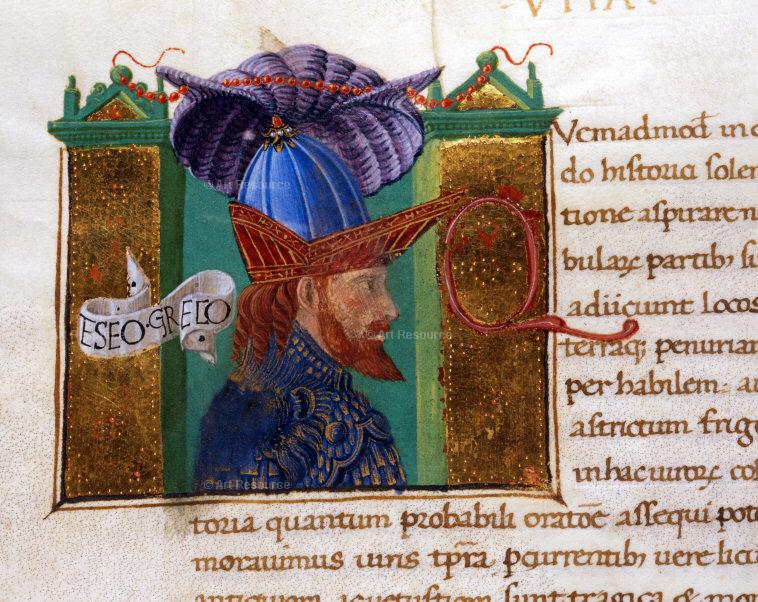 VITA
ESEO·GRECO
Q
Vemadmod̄ in o
do historia solen
tione aspirare n
bulaꝝ partib; su
adiiciunt locos
terraq; penuriam
per habilem. au
astrictum frigo
in hac uiroꝝ co
toria quantum probabili oratōe assequi pot
morauimus uiris tp̄ra ꝑcurrentib; uere licu
antiquiora, & uetustiora sunt tragica & mon
© Art Resource
© Art Resource
© Art Resource